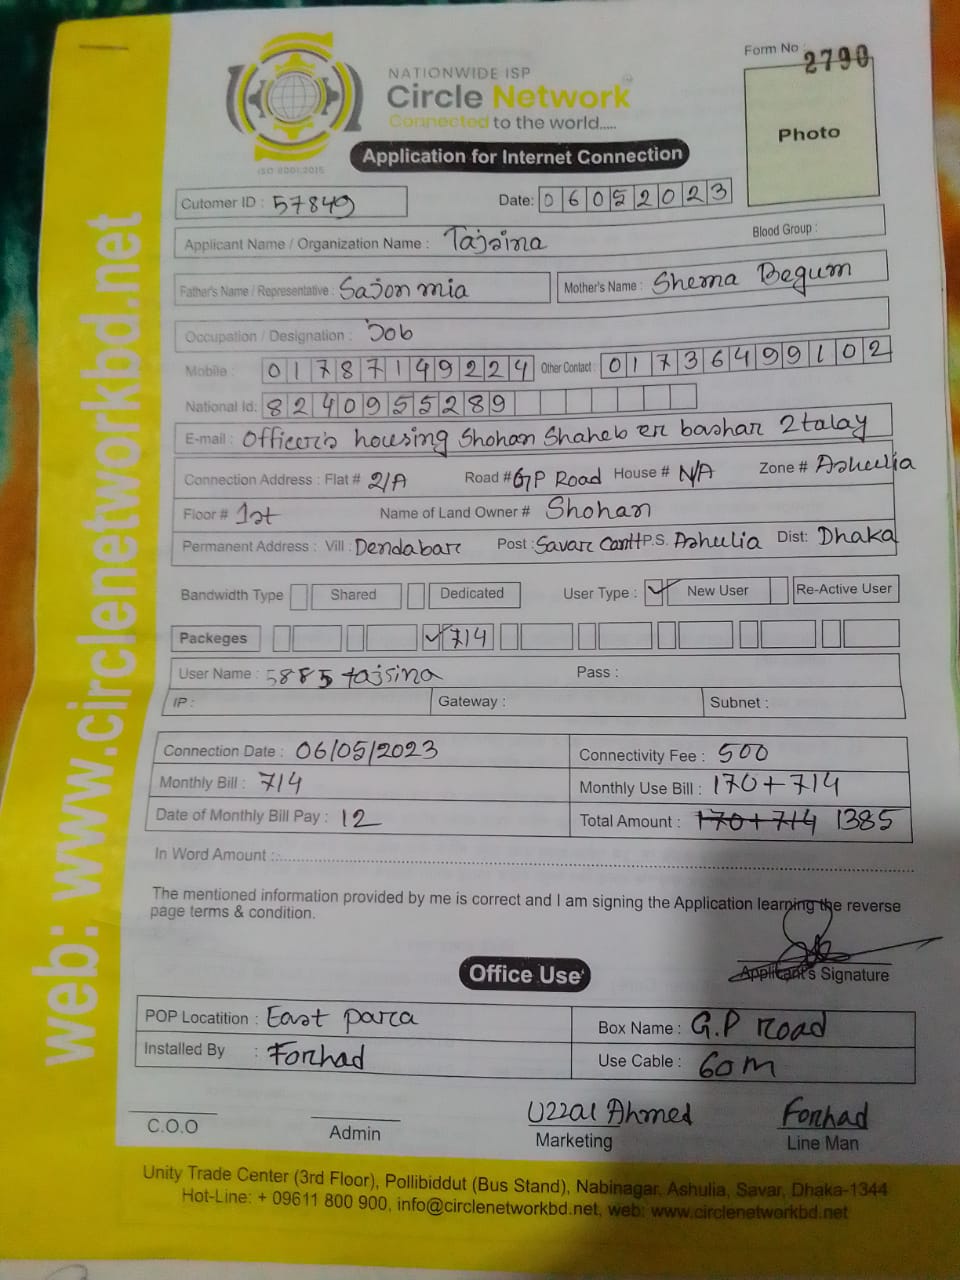 Form No : 2790
NATIONWIDE ISP
Circle Network
Connected to the world.....
ISO 9001:2015
Photo
Application for Internet Connection
Cutomer ID : 57849 Date: 06052023
Applicant Name / Organization Name : Tajsina Blood Group :
Father's Name / Representative : Sajon mia Mother's Name : Shema Begum
Occupation / Designation : Job
Mobile : 01787149224 Other Contact : 01736499102
National Id: 8240955289
E-mail : Officer's housing Shohan Shaheb er bashar 2talay
Connection Address : Flat # 2/A Road # GP Road House # N/A Zone # Ashulia
Floor # 1st Name of Land Owner # Shohan
Permanent Address : Vill : Dendabar Post : Savar Cantt P.S. Ashulia Dist: Dhaka
Bandwidth Type Shared Dedicated User Type : ✓ New User Re-Active User
Packeges ✓ 714
User Name : 5885 tajsina Pass :
IP : Gateway : Subnet :
Connection Date : 06/05/2023 Connectivity Fee : 500
Monthly Bill : 714 Monthly Use Bill : 170+714
Date of Monthly Bill Pay : 12 Total Amount : 170+714 1385
In Word Amount :
The mentioned information provided by me is correct and I am signing the Application learning the reverse
page terms & condition.
Applicant's Signature
Office Use
POP Locatition : East para Box Name : G.P road
Installed By : Forhad Use Cable : 60m
C.O.O Admin Uzzal Ahmed Forhad
Marketing Line Man
Unity Trade Center (3rd Floor), Pollibiddut (Bus Stand), Nabinagar, Ashulia, Savar, Dhaka-1344
Hot-Line: + 09611 800 900, info@circlenetworkbd.net, web: www.circlenetworkbd.net
web: www.circlenetworkbd.net